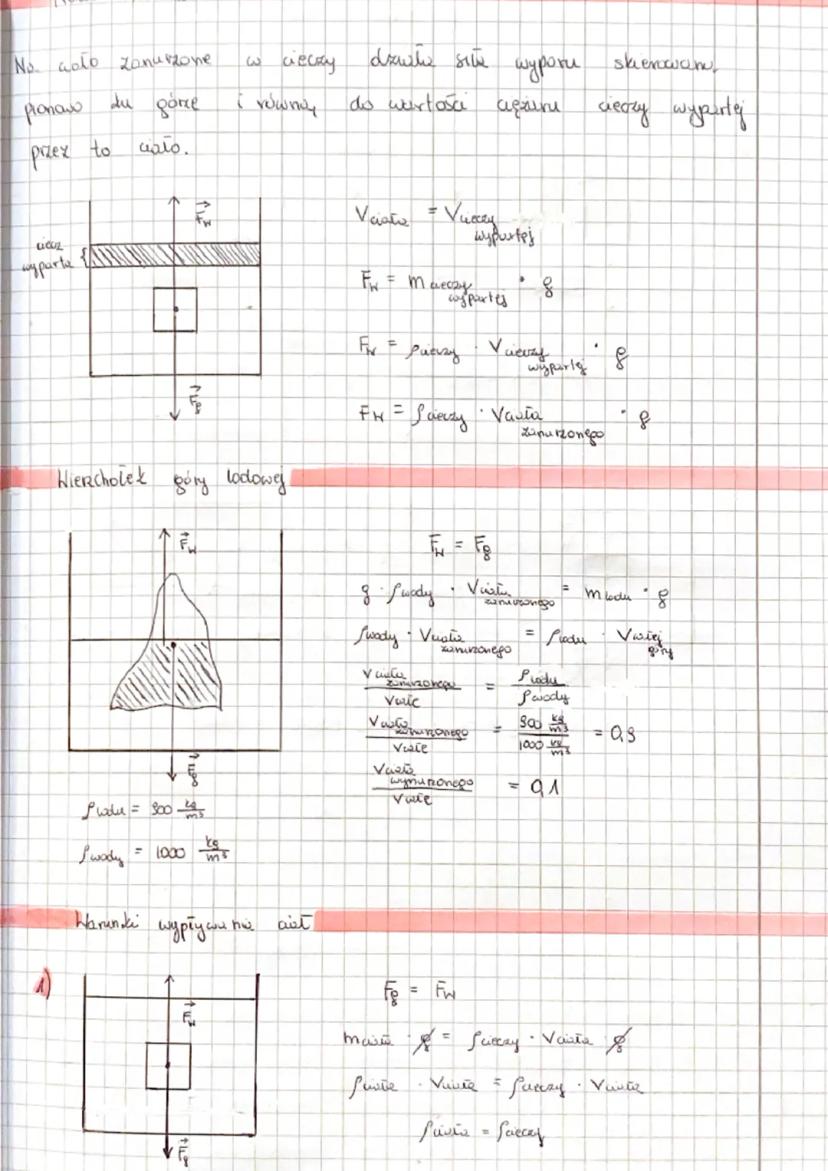 Na ciało zanurzone w cieczy działa siła wyporu skierowana
pionowo do góry i równa, do wartości ciężaru cieczy wypartej
przez to ciało.
F_w
ciecz
wyparta {
F_g
V ciała = V cieczy wypartej
F_w = m cieczy wypartej · g
F_w = ρ cieczy · V cieczy wypartej · g
F_w = ρ cieczy · V ciała zanurzonego · g
Wierzchołek góry lodowej
F_w
F_g
ρ lodu = 900 kg/m³
ρ wody = 1000 kg/m³
F_w = F_g
g · ρ wody · V ciała zanurzonego = m lodu · g
ρ wody · V ciała zanurzonego = ρ lodu · V całej góry
V ciała zanurzonego / V całe = ρ lodu / ρ wody
V ciała zanurzonego / V całe = 900 kg/m³ / 1000 kg/m³ = 0,9
V ciała wynurzonego / V całe = 0,1
Warunki wypływania ciał
1)
F_w
F_g
F_g = F_w
m ciała · g = ρ cieczy · V ciała · g
ρ ciała · V ciała = ρ cieczy · V ciała
ρ ciała = ρ cieczy